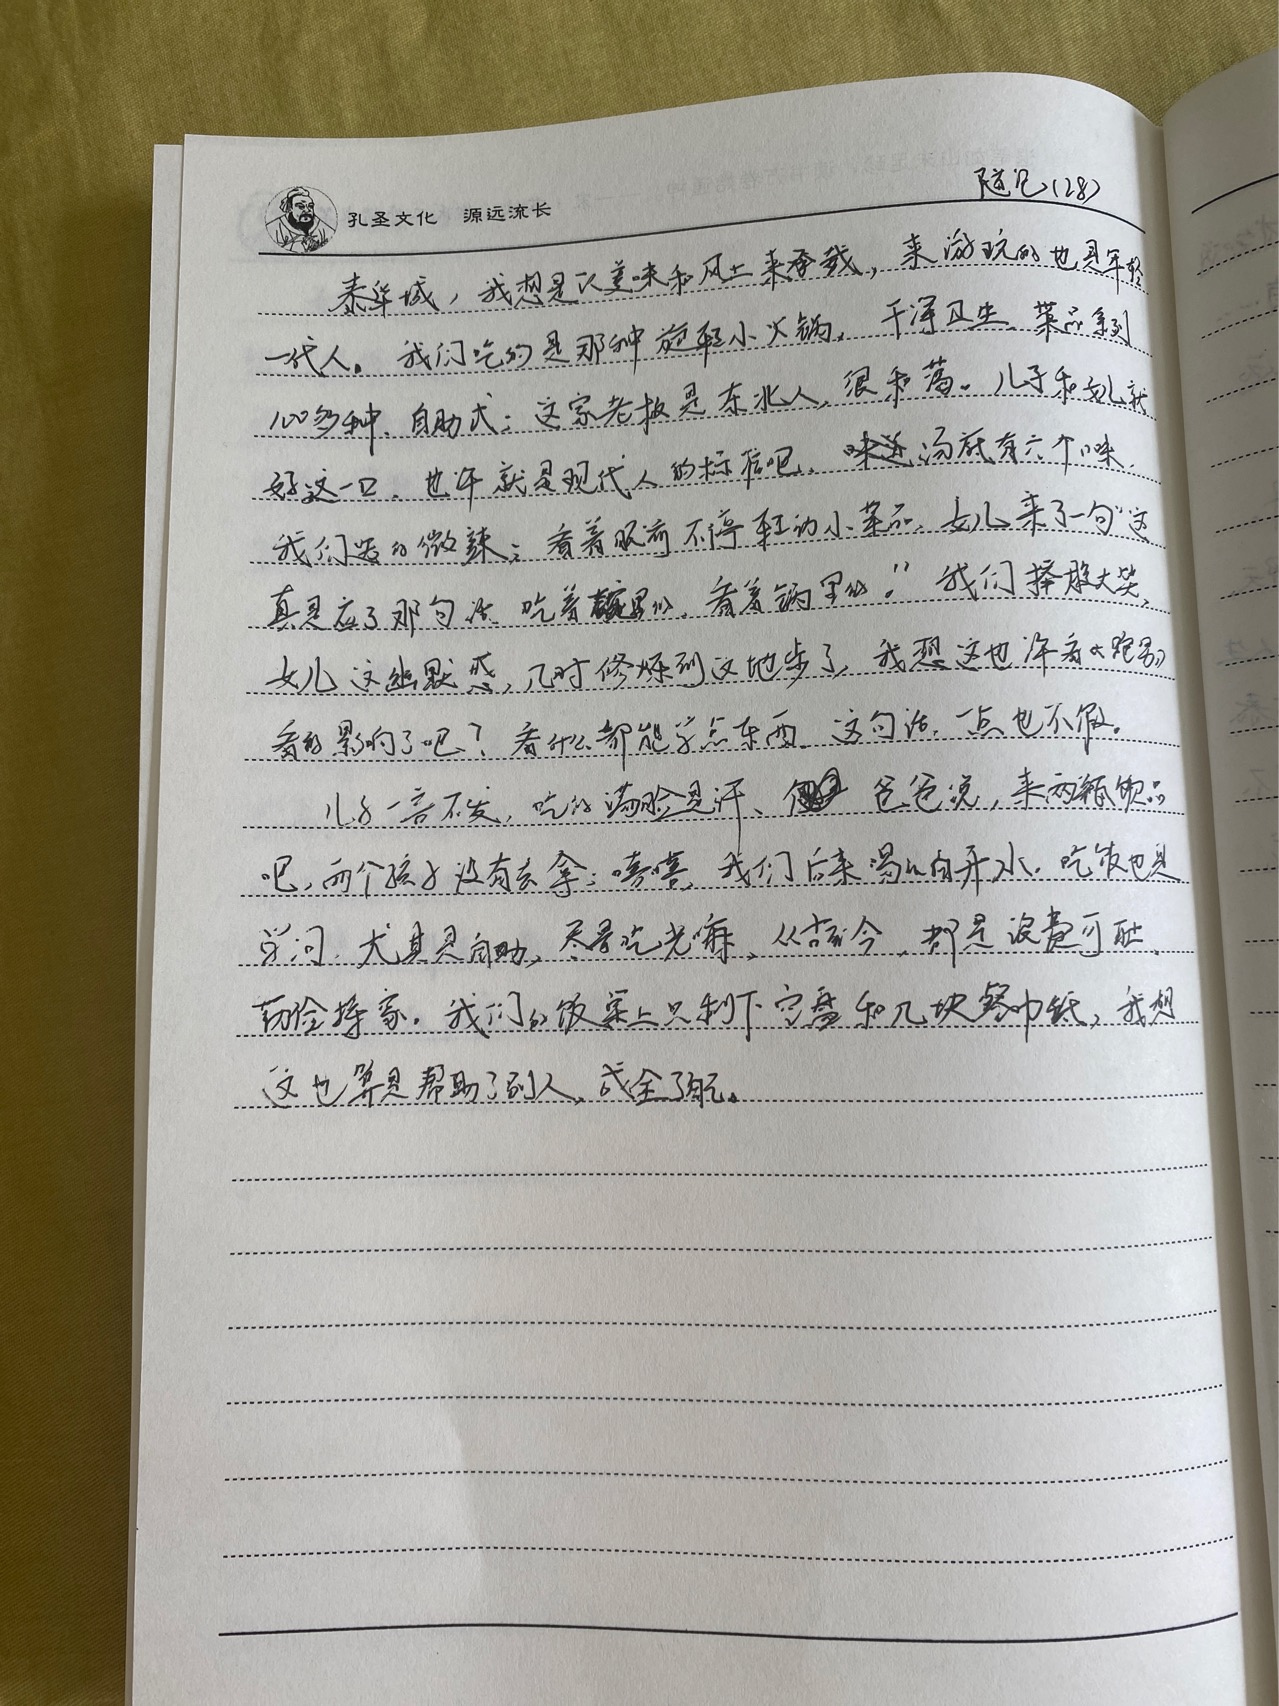 随记(28)
孔圣文化 源远流长
泰华城，我想是以美味和风土来承载，来游玩的也是年轻
一代人。我们吃的是那种旋转小火锅，干净卫生、菜品系列
100多种、自助式；这家老板是东北人，很和蔼。儿子和女儿就
好这一口，也许就是现代人的标准吧，汤底有六个口味，
我们要的微辣；看着眼前不停转动小菜品，女儿来了一句"这
真是应了那句话，吃着碗里的，看着锅里的。"我们捧腹大笑，
女儿这幽默感，几时修炼到这地步了，我想这也许看《跑男》
看的影响了吧？看什么都能学点东西，这句话，一点也不假。
儿子一言不发，吃的满脸是汗、爸爸说，来两瓶饮品
吧，两个孩子没有去拿；嘻嘻，我们后来喝的白开水。吃饭也是
学问，尤其是自助，尽量吃光嘛，从古至今，都是浪费可耻，
勤俭持家。我们的饭桌上只剩下空盘和几块餐巾纸，我想
这也算是帮助了别人，成全了自己。